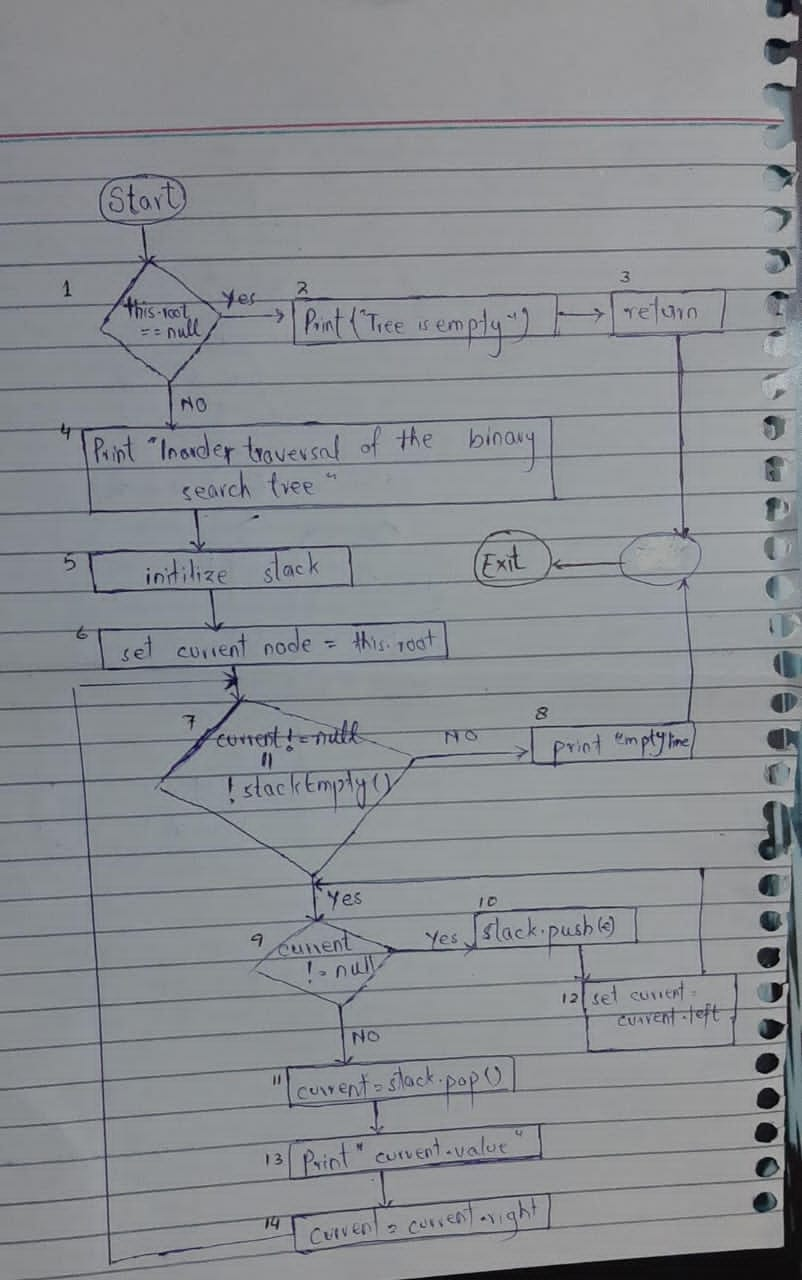 Start
1
this.root
== null
Yes
2
Print ("Tree is empty")
3
return
NO
4
Print "Inorder traversal of the binary
search tree"
5
initilize stack
Exit
6
set current node = this.root
7
current != null
||
! stackEmpty()
NO
8
print empty line
Yes
9
current
!= null
Yes
10
stack.push(c)
12
set current =
current.left
NO
11
current = stack.pop()
13
Print " current.value "
14
current = current.right